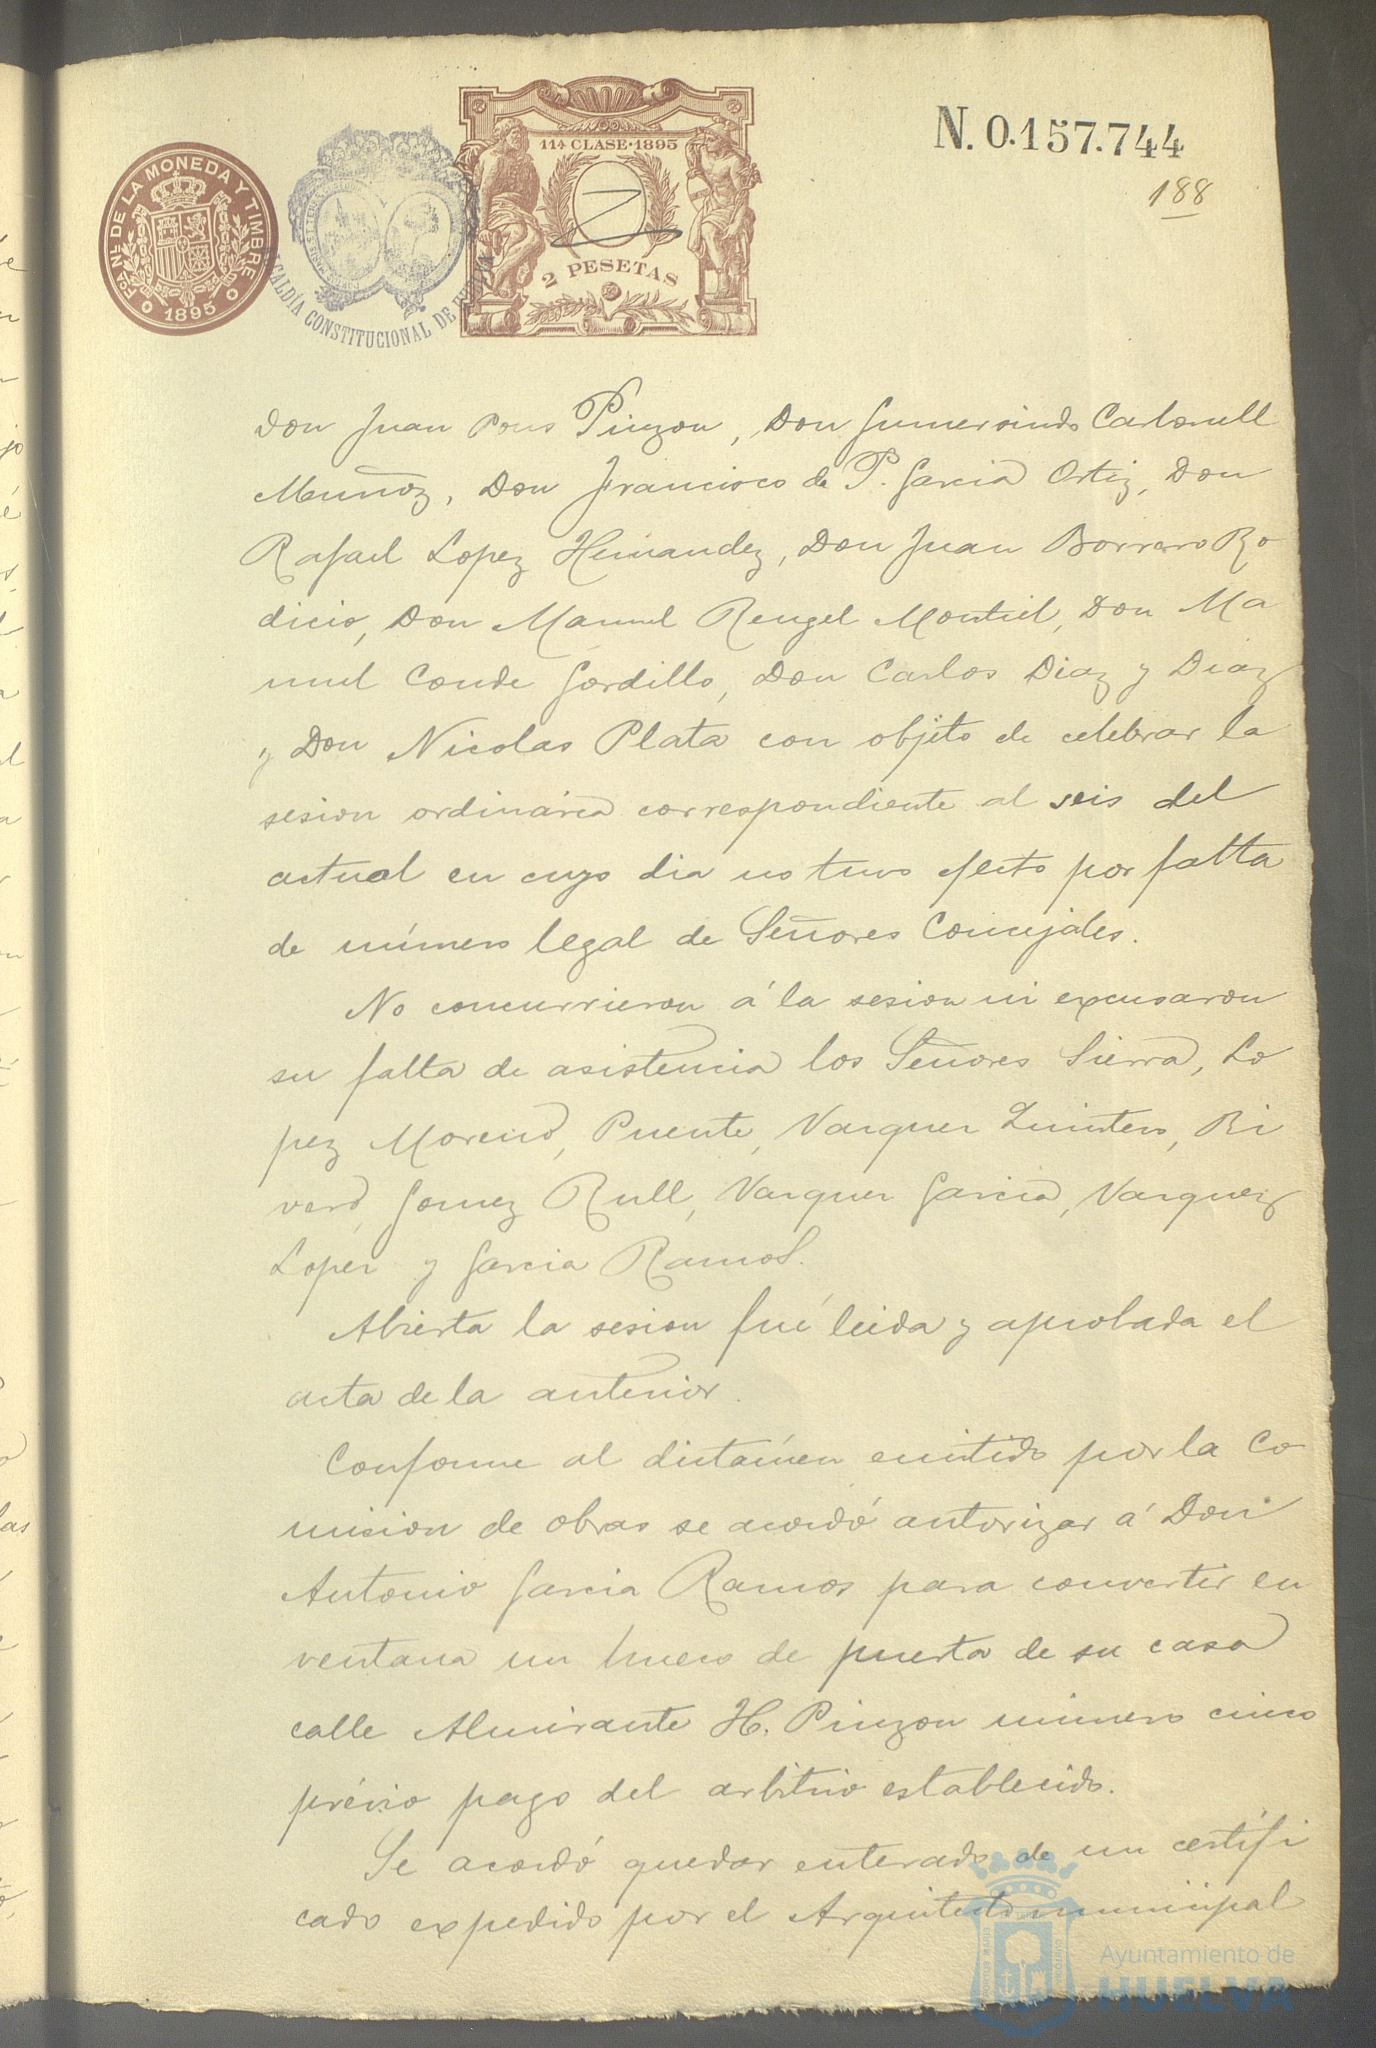 N. 0.157.744
188
11ª CLASE·1895
2 PESETAS
FCA. NL. DE LA MONEDA Y TIMBRE
1895
ALCALDIA CONSTITUCIONAL DE HUELVA
Don Juan Pons Pinzon, Don Gumersindo Carbonell
Muñoz, Don Francisco de P. Garcia Ortiz, Don
Rafael Lopez Hernandez, Don Juan Borrero Ro
dicio, Don Manuel Rengel Montiel, Don Ma
nuel Conde Gordillo, Don Carlos Diaz y Diaz
y Don Nicolas Plata con objeto de celebrar la
sesion ordinária correspondiente al seis del
actual en cuyo dia no tuvo efecto por falta
de número legal de Señores Concejales.
No concurrieron á la sesion ni excusaron
su falta de asistencia los Señores Sierra, Lo
pez Moreno, Puente, Vazquez Quintero, Ri
vero, Gomez Rull, Vazquez Garcia, Vazquez
Lopez y Garcia Ramos.
Abierta la sesion fué leida y aprobada el
acta de la anterior.
Conforme al dictámen emitido por la Co
mision de obras se acordó autorizar á Don
Antonio Garcia Ramos para convertir en
ventana un hueco de puerta de su casa
calle Almirante H. Pinzon número cinco
prévio pago del arbitrio establecido.
Se acordó quedar enterado de un certifi
cado expedido por el Arquitecto municipal
Ayuntamiento de
HUELVA